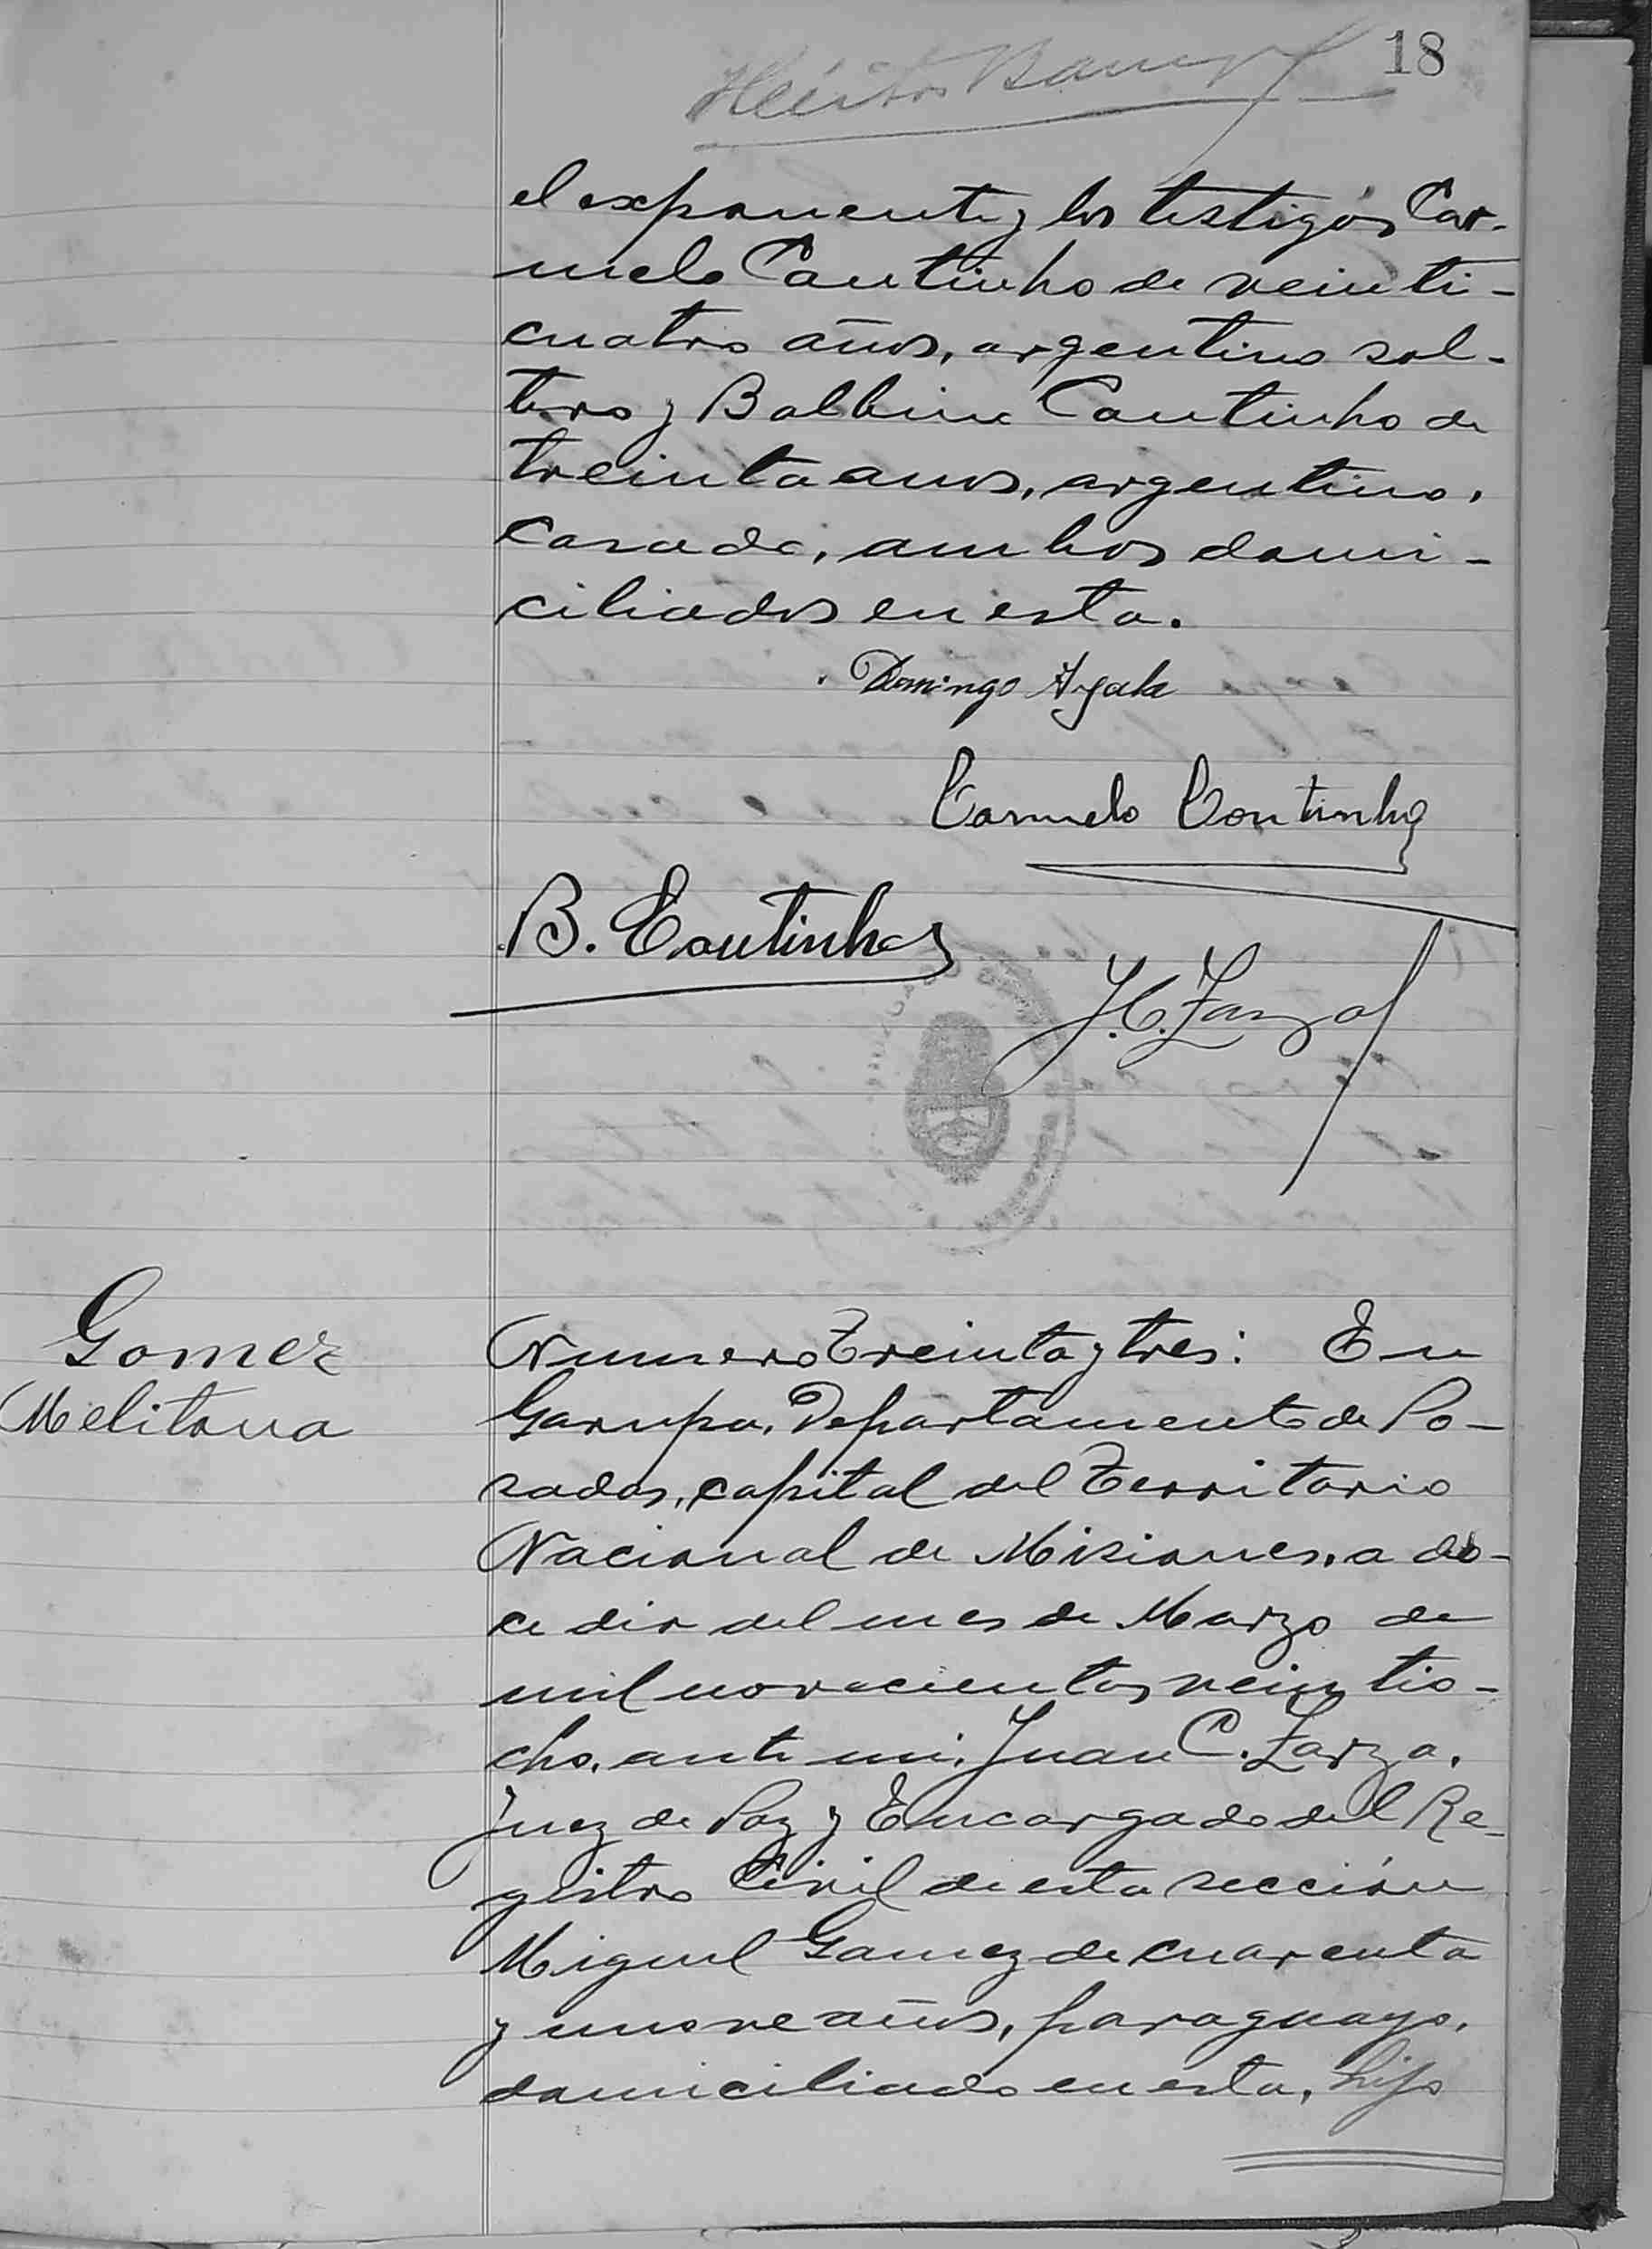 18
el exponente y los testigos Car-
melo Coutinho de veinti-
cuatro años, argentino sol-
tero y Balbino Coutinho de
treinta anos, argentino,
Casado, ambos domi-
ciliados en esta.
Domingo Ayala
Carmelo Coutinho
B. Coutinho
J. C. Zarza
Gomez
Melitona
Numero Treinta y tres: En
Garupa, Departamento de Po-
sadas, capital del Territorio
Nacional de Misiones, a do-
ce dia del mes de Marzo de
mil novecientos veintio-
cho, ante mi, Juan C. Zarza,
Juez de Paz y Encargado del Re-
gistro Civil de esta sección
Miguel Gomez de cuarenta
y nueve años, paraguayo,
domiciliado en esta, hijo